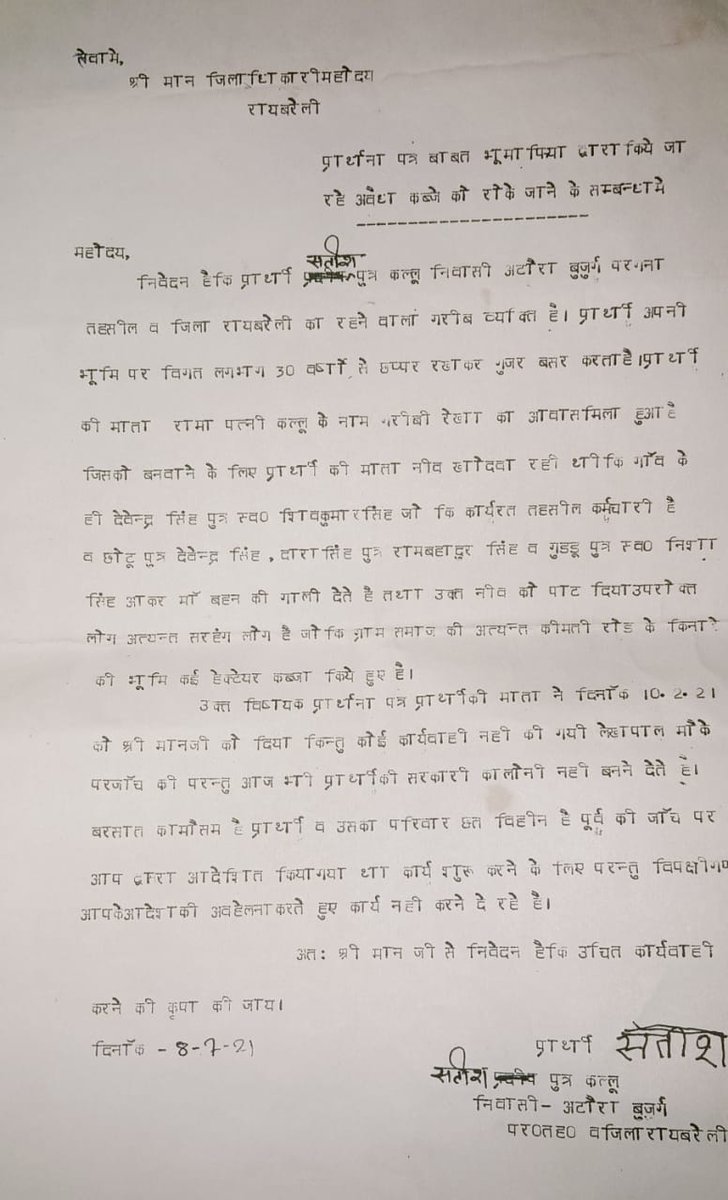 सेवामे,
श्री मान जिलाधिकारीमहोदय
रायबरेली
प्रार्थना पत्र बाबत भूमाफिया द्वारा किये जा
रहे अवैधा कब्जे को रोके जाने के सम्बन्धामे
महोदय,
सतीश
निवेदन हैकि प्रार्थी पुत्र कल्लू निवासी अटौरा बुजुर्ग परगना
तहसील व जिला रायबरेली का रहने वाला गरीब व्यक्ति है। प्रार्थी अपनी
भूमि पर विगत लगभग 30 वर्षो से छप्पर रखाकर गुजर बसर करताहै।प्रार्थी
की माता रामा पत्नी कल्लू के नाम गरीबी रेखा का आवासमिला हुआहै
जिसको बनवाने के लिए प्रार्थी की माता नीव खोदवा रही थीकि गाँव के
ही देवेन्द्र सिंह पुत्र स्व0 शिवकुमारसिंह जो कि कार्यरत तहसील कर्मचारी है
व छोटू पुत्र देवेन्द्र सिंह, दारासिंह पुत्र रामबहादुर सिंह व गुडडू पुत्र स्व0 निशा
सिंह आकर माँ बहन की गाली देते है तथा उक्त नीव को पाट दियाउपरोक्त
लोग अत्यन्त सरहंग लोग है जोकि ग्राम समाज की अत्यन्त कीमती रोड के किनारे
की भूमि कई हेक्टेयर कब्जा किये हुए है।
उक्त विषायक प्रार्थाना पत्र प्रार्थीकी माता ने दिनाँक 10.2.21
को श्री मानजी को दिया किन्तु कोई कार्यवाही नही की गयी लेखापाल मौके
परजाँच की परन्तु आज भी प्रार्थीकी सरकारी कालोनी नही बनने देते है।
बरसात कामौसम है प्रार्थी व उसका परिवार छत विहीन है पूर्व की जाँच पर
आप द्वारा आदेशित कियागया था कार्य शुरू करने के लिए परन्तु विपक्षीगण
आपकेआदेशाकी अवहेलनाकरते हुए कार्य नही करने दे रहे है।
अत: श्री मान जी से निवेदन हैकि उचित कार्यवाही
करने की कृपा की जाय।
दिनाँक - 8-7-21
प्रार्थी सतीश
सतीश पुत्र कल्लू
निवासी- अटौरा बुजुर्ग
पर0तह0 वजिलारायबरेली